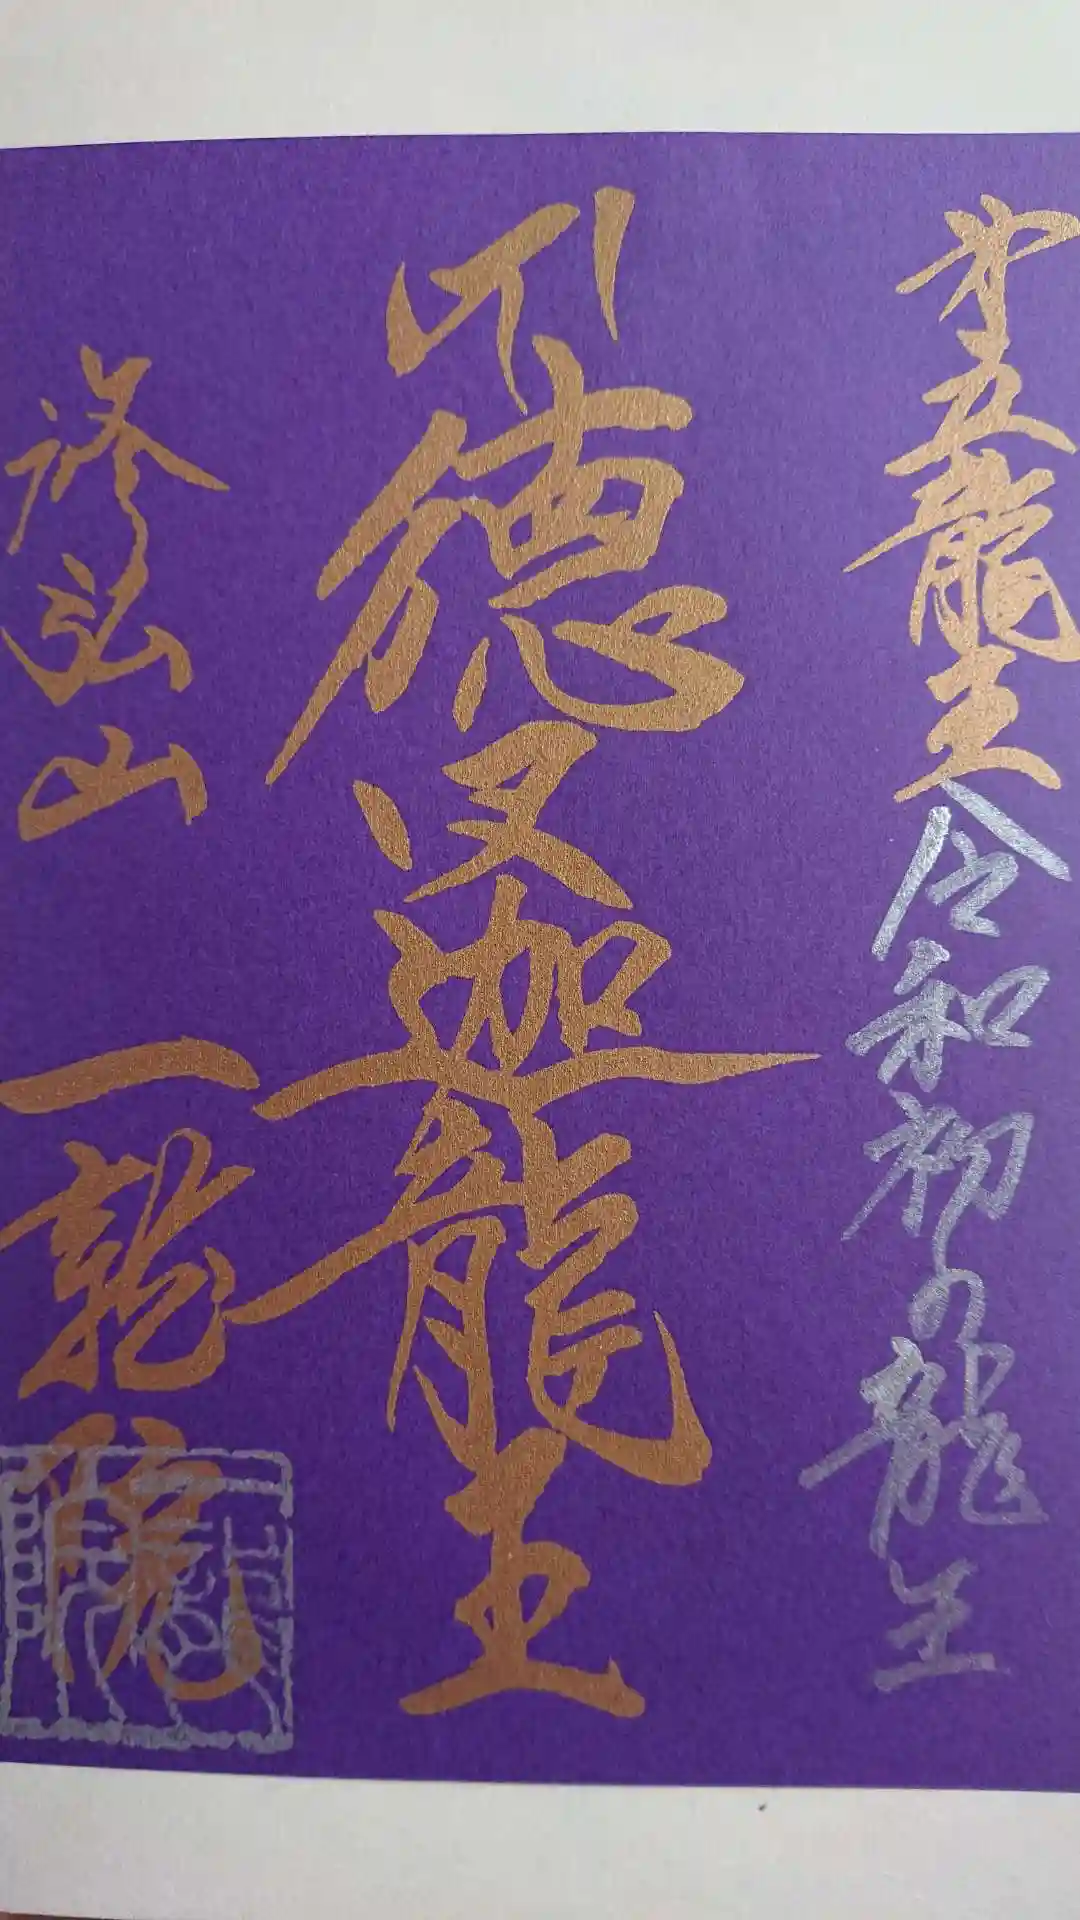 第五龍王 令和初の龍王
徳叉迦龍王
修弘山 一龍院